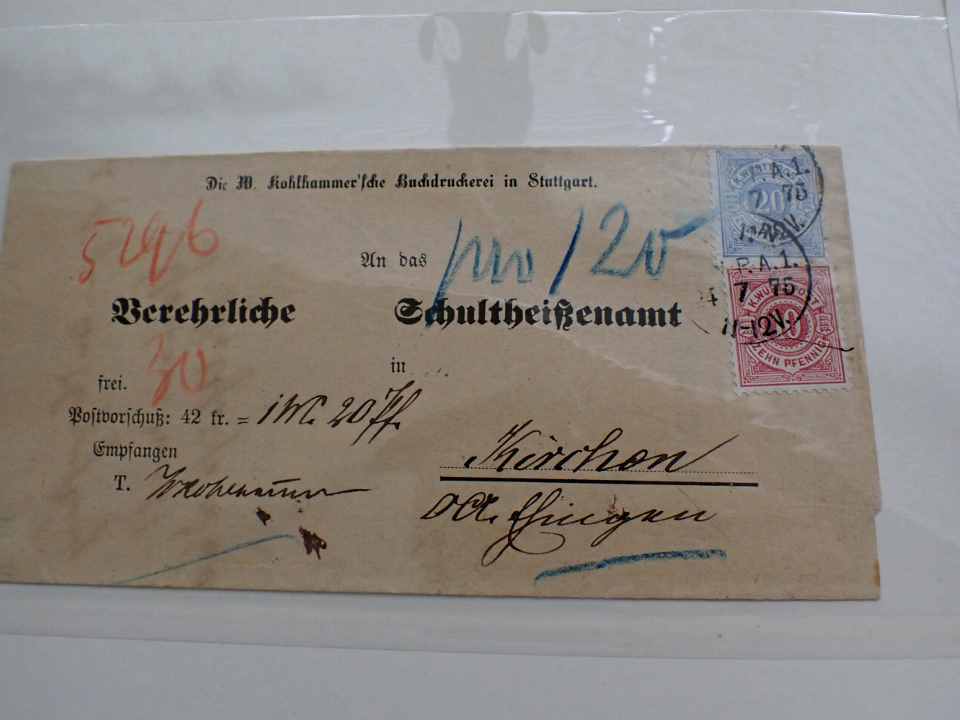 Die W. Kohlhammer'sche Buchdruckerei in Stuttgart.
5296
An das
1/20
Verehrliche Schultheißenamt
30
in
frei.
Postvorschuß: 42 kr. = 1 M. 20 Pf.
Empfangen
T. WKohlhammer
Kirchen
OA. Ehingen
P.A.1.
7 75
20
P.A.1.
7 75
11-12V.
K.WÜRTT. POST
10
ZEHN PFENNIG